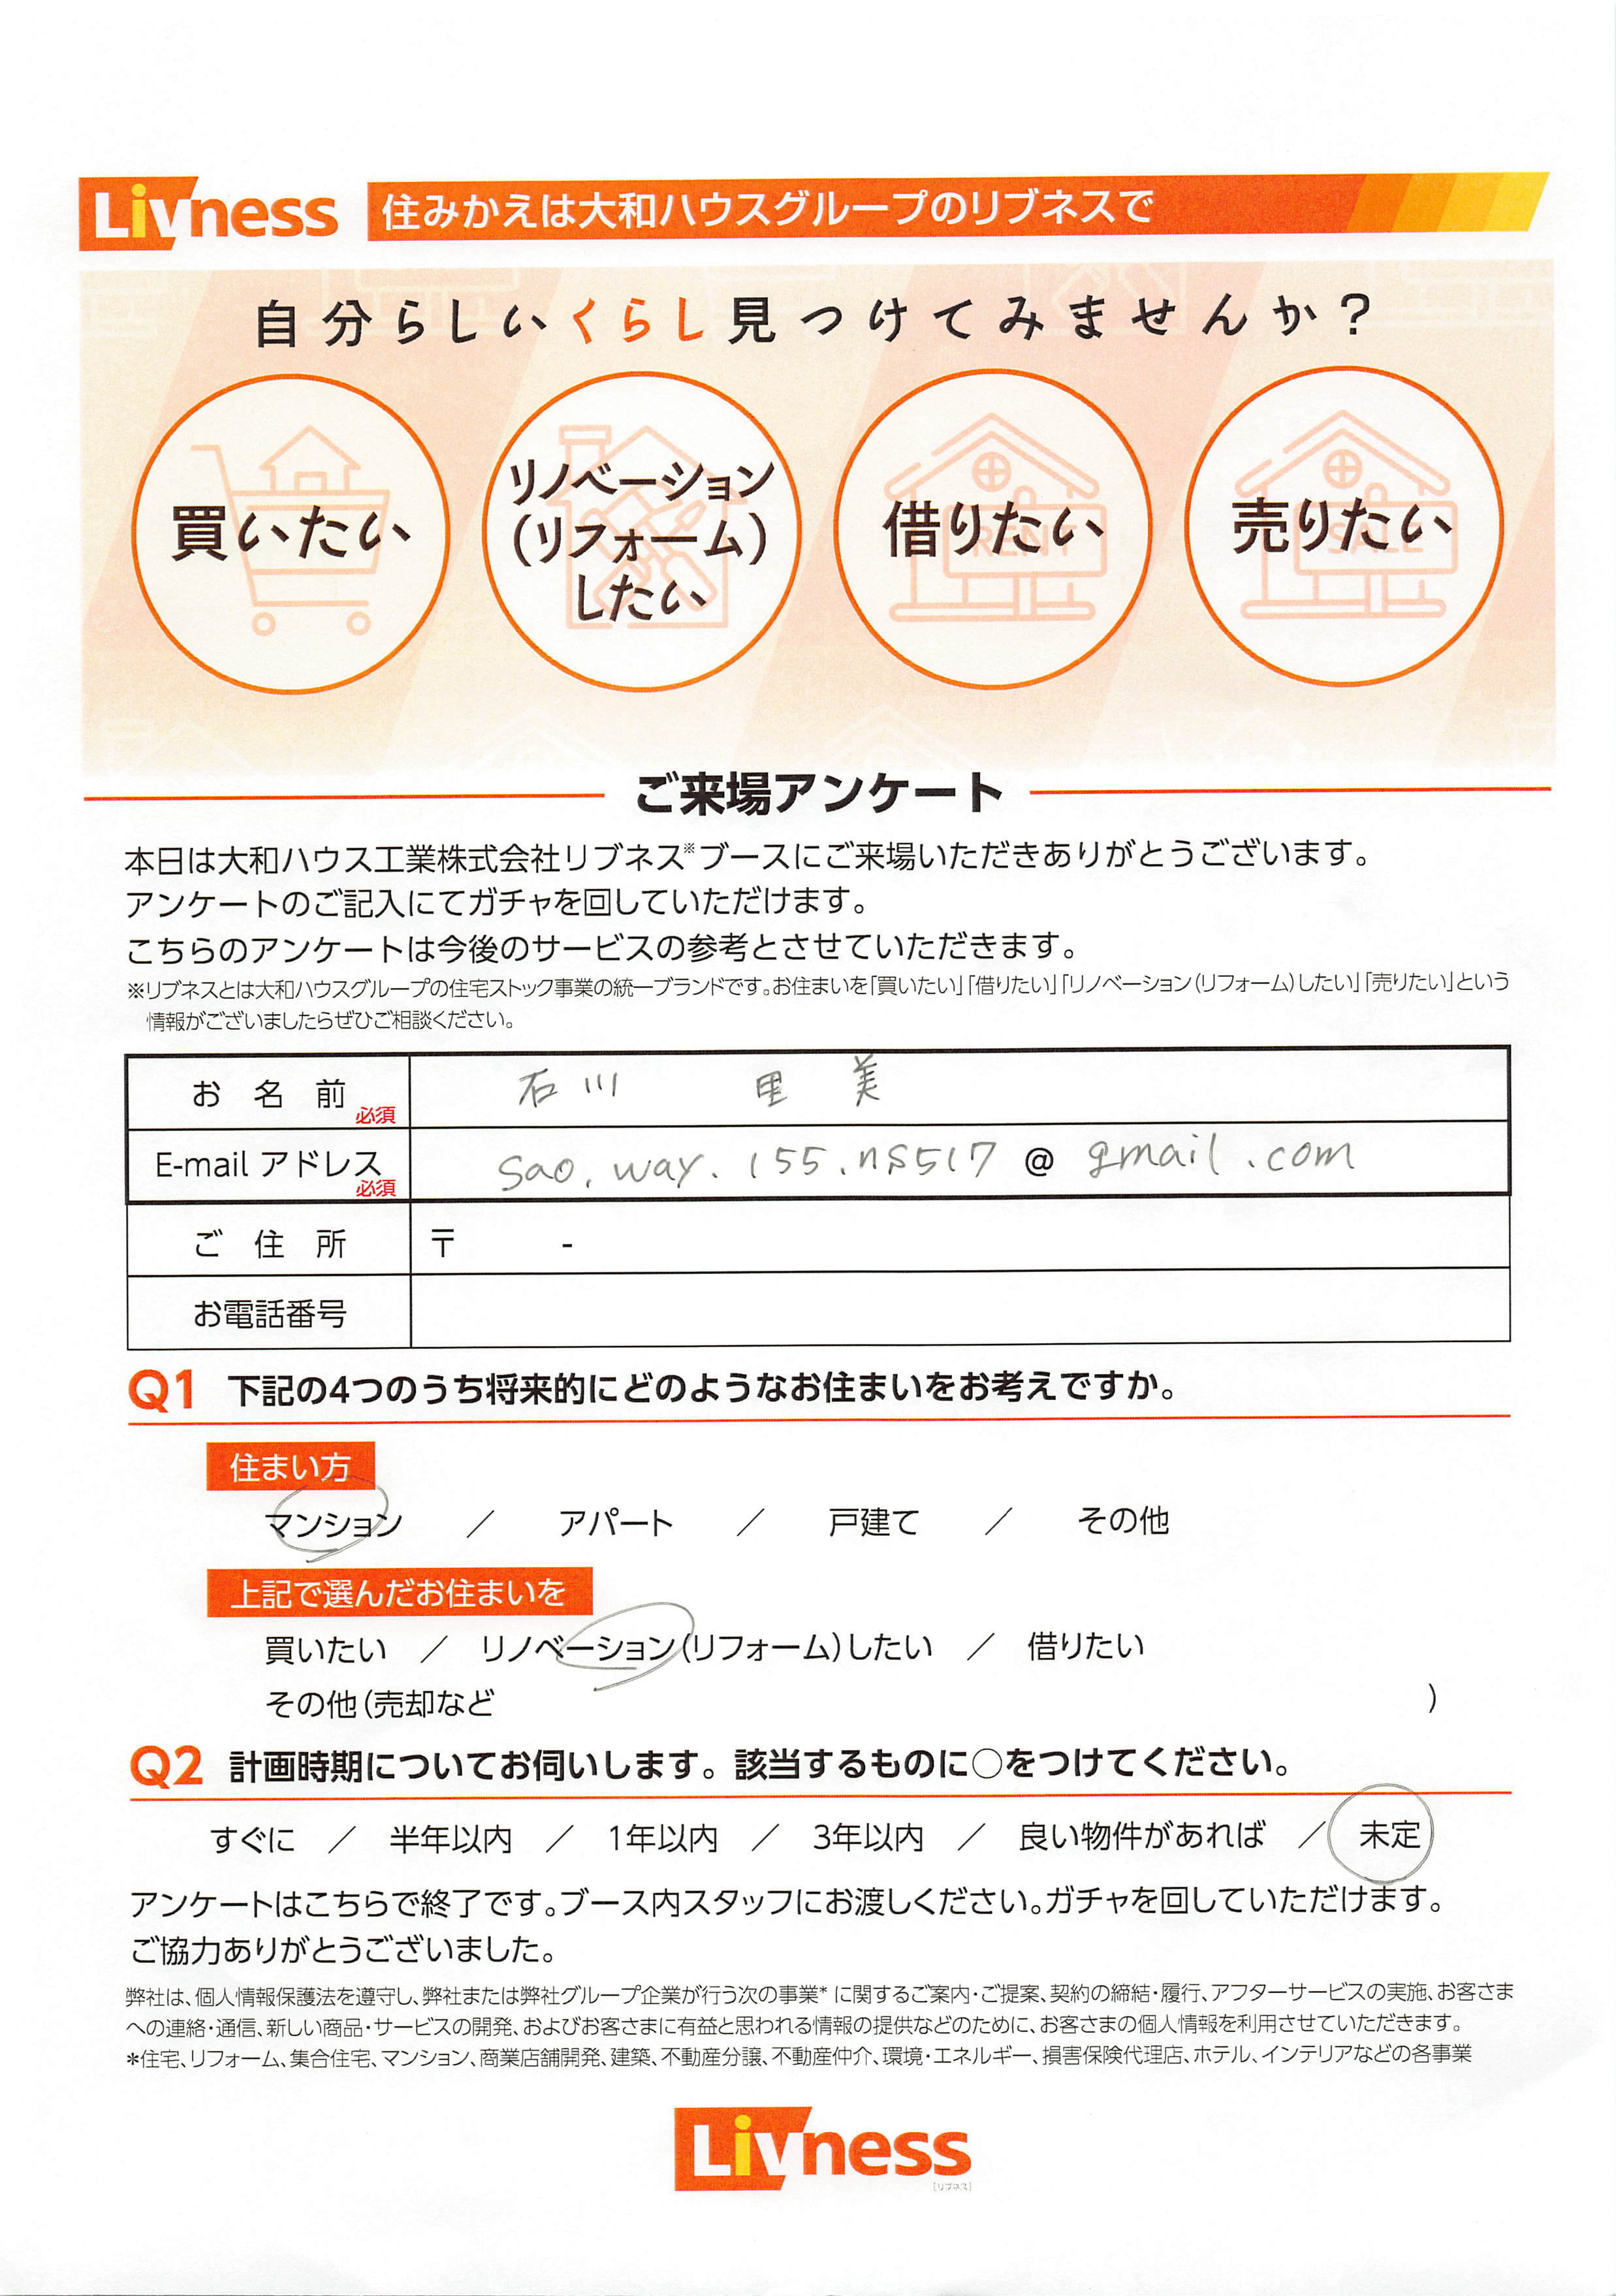 Livness 住みかえは大和ハウスグループのリブネスで
自分らしいくらし見つけてみませんか？
買いたい
リノベーション
(リフォーム)
したい
RENT
借りたい
SALE
売りたい
ご来場アンケート
本日は大和ハウス工業株式会社リブネス※ブースにご来場いただきありがとうございます。
アンケートのご記入にてガチャを回していただけます。
こちらのアンケートは今後のサービスの参考とさせていただきます。
※リブネスとは大和ハウスグループの住宅ストック事業の統一ブランドです。お住まいを「買いたい」「借りたい」「リノベーション(リフォーム)したい」「売りたい」という
情報がございましたらぜひご相談ください。
お名前 必須 石川 里美
E-mail アドレス 必須 sao.way.155.ns517@gmail.com
ご住所 〒 -
お電話番号
Q1 下記の4つのうち将来的にどのようなお住まいをお考えですか。
住まい方
マンション / アパート / 戸建て / その他
上記で選んだお住まいを
買いたい / リノベーション(リフォーム)したい / 借りたい
その他(売却など )
Q2 計画時期についてお伺いします。該当するものに○をつけてください。
すぐに / 半年以内 / 1年以内 / 3年以内 / 良い物件があれば / 未定
アンケートはこちらで終了です。ブース内スタッフにお渡しください。ガチャを回していただけます。
ご協力ありがとうございました。
弊社は、個人情報保護法を遵守し、弊社または弊社グループ企業が行う次の事業*に関するご案内・ご提案、契約の締結・履行、アフターサービスの実施、お客さま
への連絡・通信、新しい商品・サービスの開発、およびお客さまに有益と思われる情報の提供などのために、お客さまの個人情報を利用させていただきます。
*住宅、リフォーム、集合住宅、マンション、商業店舗開発、建築、不動産分譲、不動産仲介、環境・エネルギー、損害保険代理店、ホテル、インテリアなどの各事業
Livness
[リブネス]